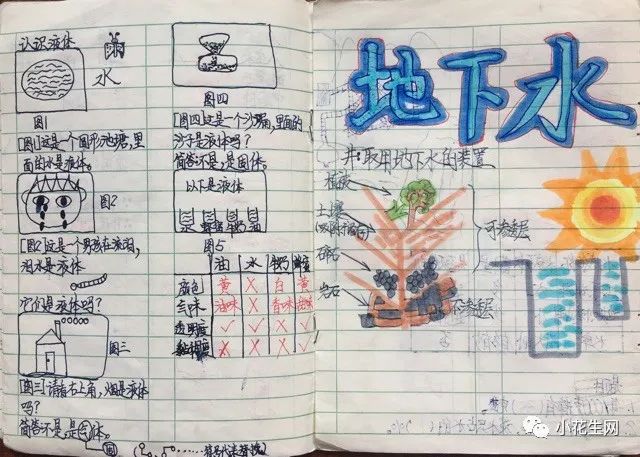 认识液体
水
图1
[图1]这是一个圆形池塘,里
面的水是液体。
图2
[图2]这是一个男孩在流泪,
泪水是液体
它们是液体吗?
图三
[图三]请看右上角,烟是液体
吗?
简答:不是,是气体。
图四
[图四]这是一个沙漏,里面的
沙子是液体吗?
简答:不是,是固体。
以下是液体
图5
油 水 牛奶 蜂蜜
颜色 黄 X 白 黄
气味 油味 X 香味
透明度 ✓ ✓ X ✓
黏稠度 X X X ✓
地下水
井:取用地下水的装置
植被
土壤
砂石
岩石
可渗透层
不渗透层
小花生网